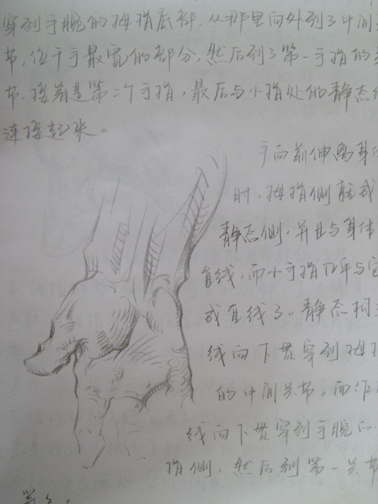 穿到手腕的拇指底部，从那里向外到了中间
节，位于手最宽的部分，然后到了第一手指的
节，接着是第二个手指，最后与小指处的静态
连接起来。
手向前伸离身
时，拇指侧就
静态侧，并且与身体
直线，而小手指几乎与
成直线了。静态
线向下贯穿到拇
的中间关节，而
线向下贯穿到手腕的
指侧，然后到第一关节